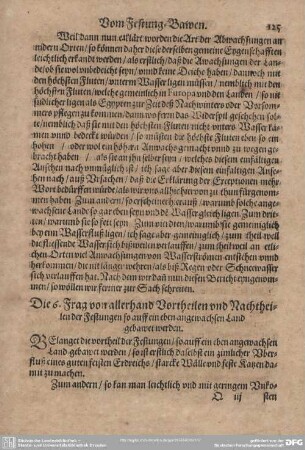 Vom Festung-Bawen. 125
Weil dann nun erklärt worden die Art der Abwachsungen an
andern Orten / so können daher diese derselben gemeine Eygenschafften
leichtlich erkandt werden / als erstlich / daß die
de / ob sie wol unbedeicht seyn / unnd keine Deiche haben / dannoch mit
den höchsten Fluten / Wasser ligen müssen / nemlich mit den
höchsten Fluten / welche gemeinlich in Europa und den Landen / so mit
südlicher ligen als Egypten zur Zeit deß Nachwinters oder Vorsom-
mers pflegen zu kommen / dann wo fern das Widerspil geschehen sol-
te / nemblich daß sie mit den höchsten Fluten nicht unters Wasser käm-
men und bedeckt würden / so müsten die höchste Fluten eben so
hohen / oder wol ein höhern Anwachs gemacht und zu wegen ge-
bracht haben / als sie an ihn selber seyn / welches diesem einfältigen
Ansehen nach unmüglich ist / ich sage aber diesem einfältigen Anse-
hen nach / auß Ursachen / daß die Erklärung der Exceptionen mehr
Wort bedürffen würde / als wir uns allhie fürzu thun fürgenom-
men haben. Zum andern / so erscheinet hierauß / warumb solch ange-
wachsenen Land so gar eben seyn und dem Wasser gleich ligen. Zum drit-
ten / warumb sie so fett seyn. Zum vierdten / warumb sie gemeinglich
bey ein Wasserfluß ligen / ich sage aber gemeinglich / zum theil weil
die fliessende Wasser sich bißweilen verlauffen / zum theil weil an etli-
chen Orten viel Anwachsungen von Wasserströmen entstehen unnd
herkommen / die nit länger wehren / als biß Regen oder Schneewasser
sich verlauffen hat. Nach dem wir dan nun diesen Bericht eyngenom-
men / so wöllen wir ferner zur Sach schreiten.
Die 6. Frag von allerhand Vortheilen und Nachthei-
len der Festungen so auff ein eben angewachsen Land
gebawet werden.
BElanget die vortheil der Festungen / so auff ein eben angewachsen
Land gebawet werden / so ist erstlich daselbst ein zimlicher Uber-
fluß eines guten festen Erdreichs / starcke Wälle und feste Katzen da-
mit zu machen.
Zum andern / so kan man leichtlich und mit geringem Unko-
Q iij sten